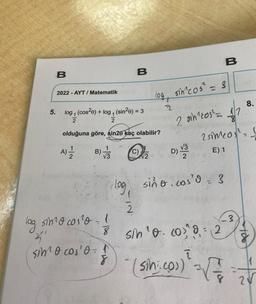 B
B
B
2022 - AYT / Matematik
5. log 1/2 (cos²θ) + log 1/2 (sin²θ) = 3
olduğuna göre, sin2θ kaç olabilir?
A) 1/2 B) 1/√3 C) 1/√2 D) √3/2 E) 1
8.
log 1/2 sin²cos² = 3
2 sin²cos² =
2 sin²cos² =
log 1/2 sin²θ . cos²θ = 3
sin²θ . cos²θ = 2⁻³
(sin . cos)² = √1/8
log sin²θ cos²θ = 1/8
sin²θ cos²θ = 1/8